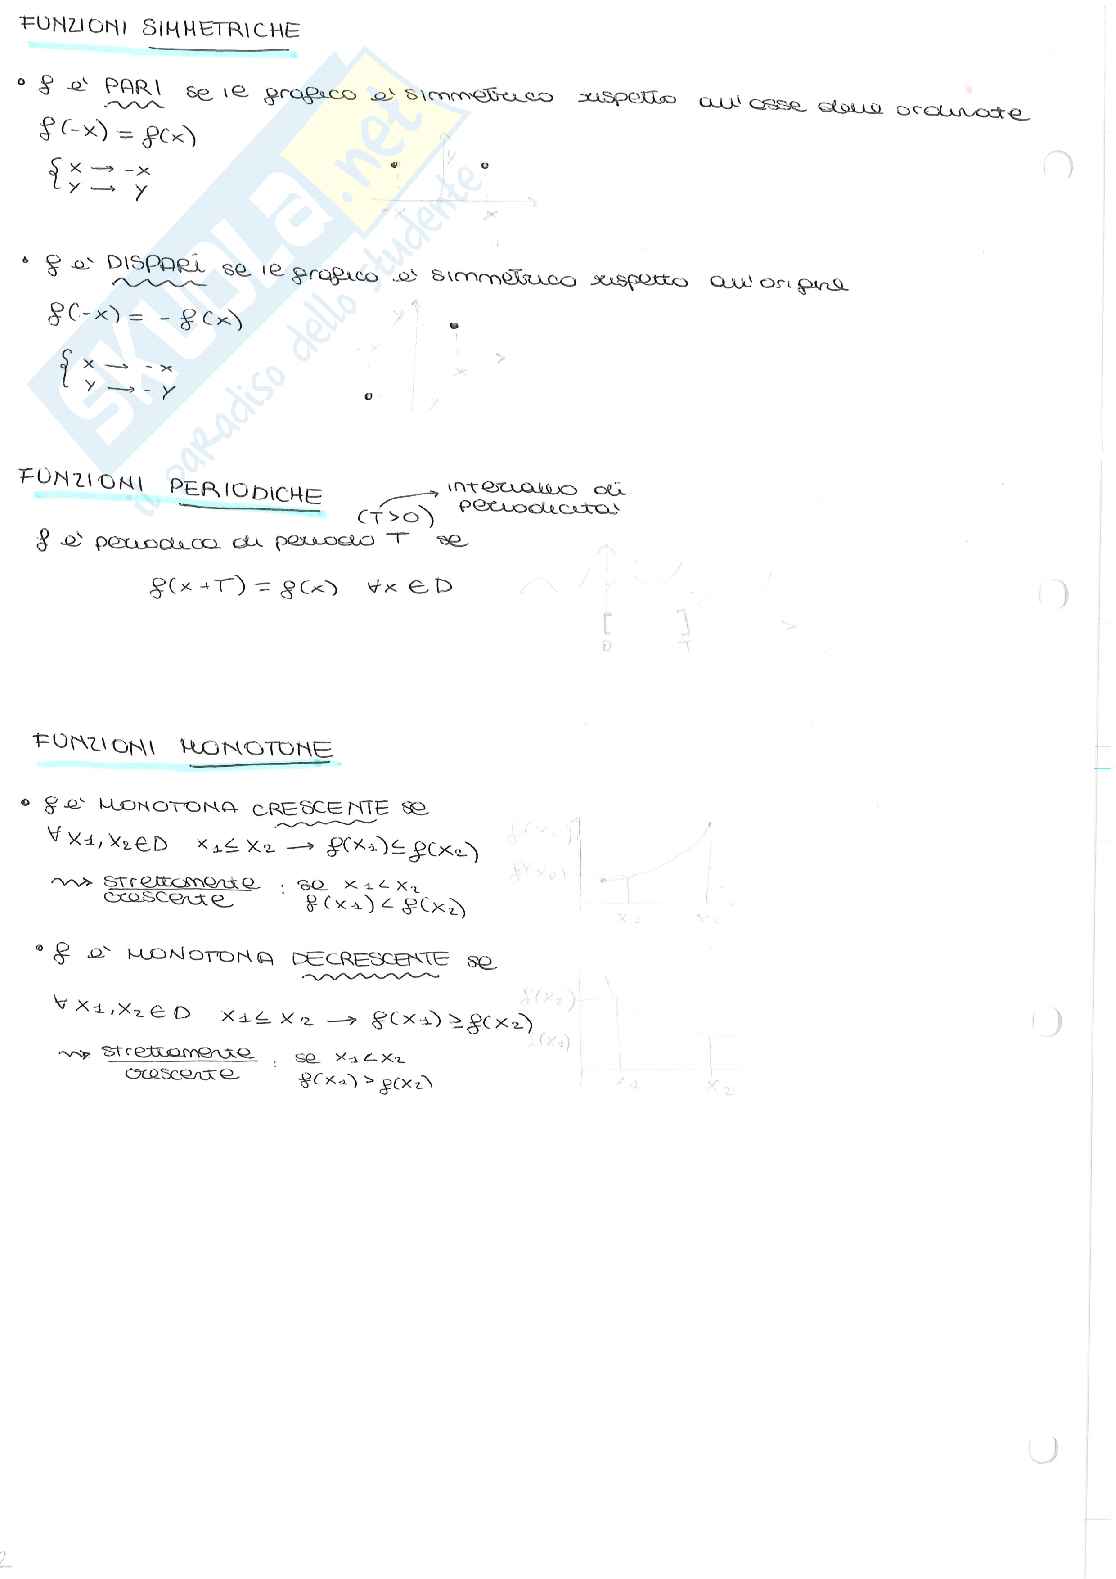 FUNZIONI SIMMETRICHE
• f è PARI se il grafico è simmetrico rispetto all'asse delle ordinate
f(-x) = f(x)
{ x → -x
y → y
y
-x x
• f è DISPARI se il grafico è simmetrico rispetto all'origine
f(-x) = - f(x)
{ x → -x
y → -y
y
x
FUNZIONI PERIODICHE
(T>0) → intervallo di
periodicità
f è periodica di periodo T se
f(x+T) = f(x) ∀x ∈ D
[ ]
0 T
FUNZIONI MONOTONE
• f è MONOTONA CRESCENTE se
∀ x1, x2 ∈ D x1 ≤ x2 → f(x1) ≤ f(x2)
⇝ strettamente
crescente : se x1 < x2
f(x1) < f(x2)
• f è MONOTONA DECRESCENTE se
∀ x1, x2 ∈ D x1 ≤ x2 → f(x1) ≥ f(x2)
⇝ strettamente
crescente : se x1 < x2
f(x1) > f(x2)
f(x2)
f(x1)
x1 x2
SKUOLA.net
il paradiso dello studente
2